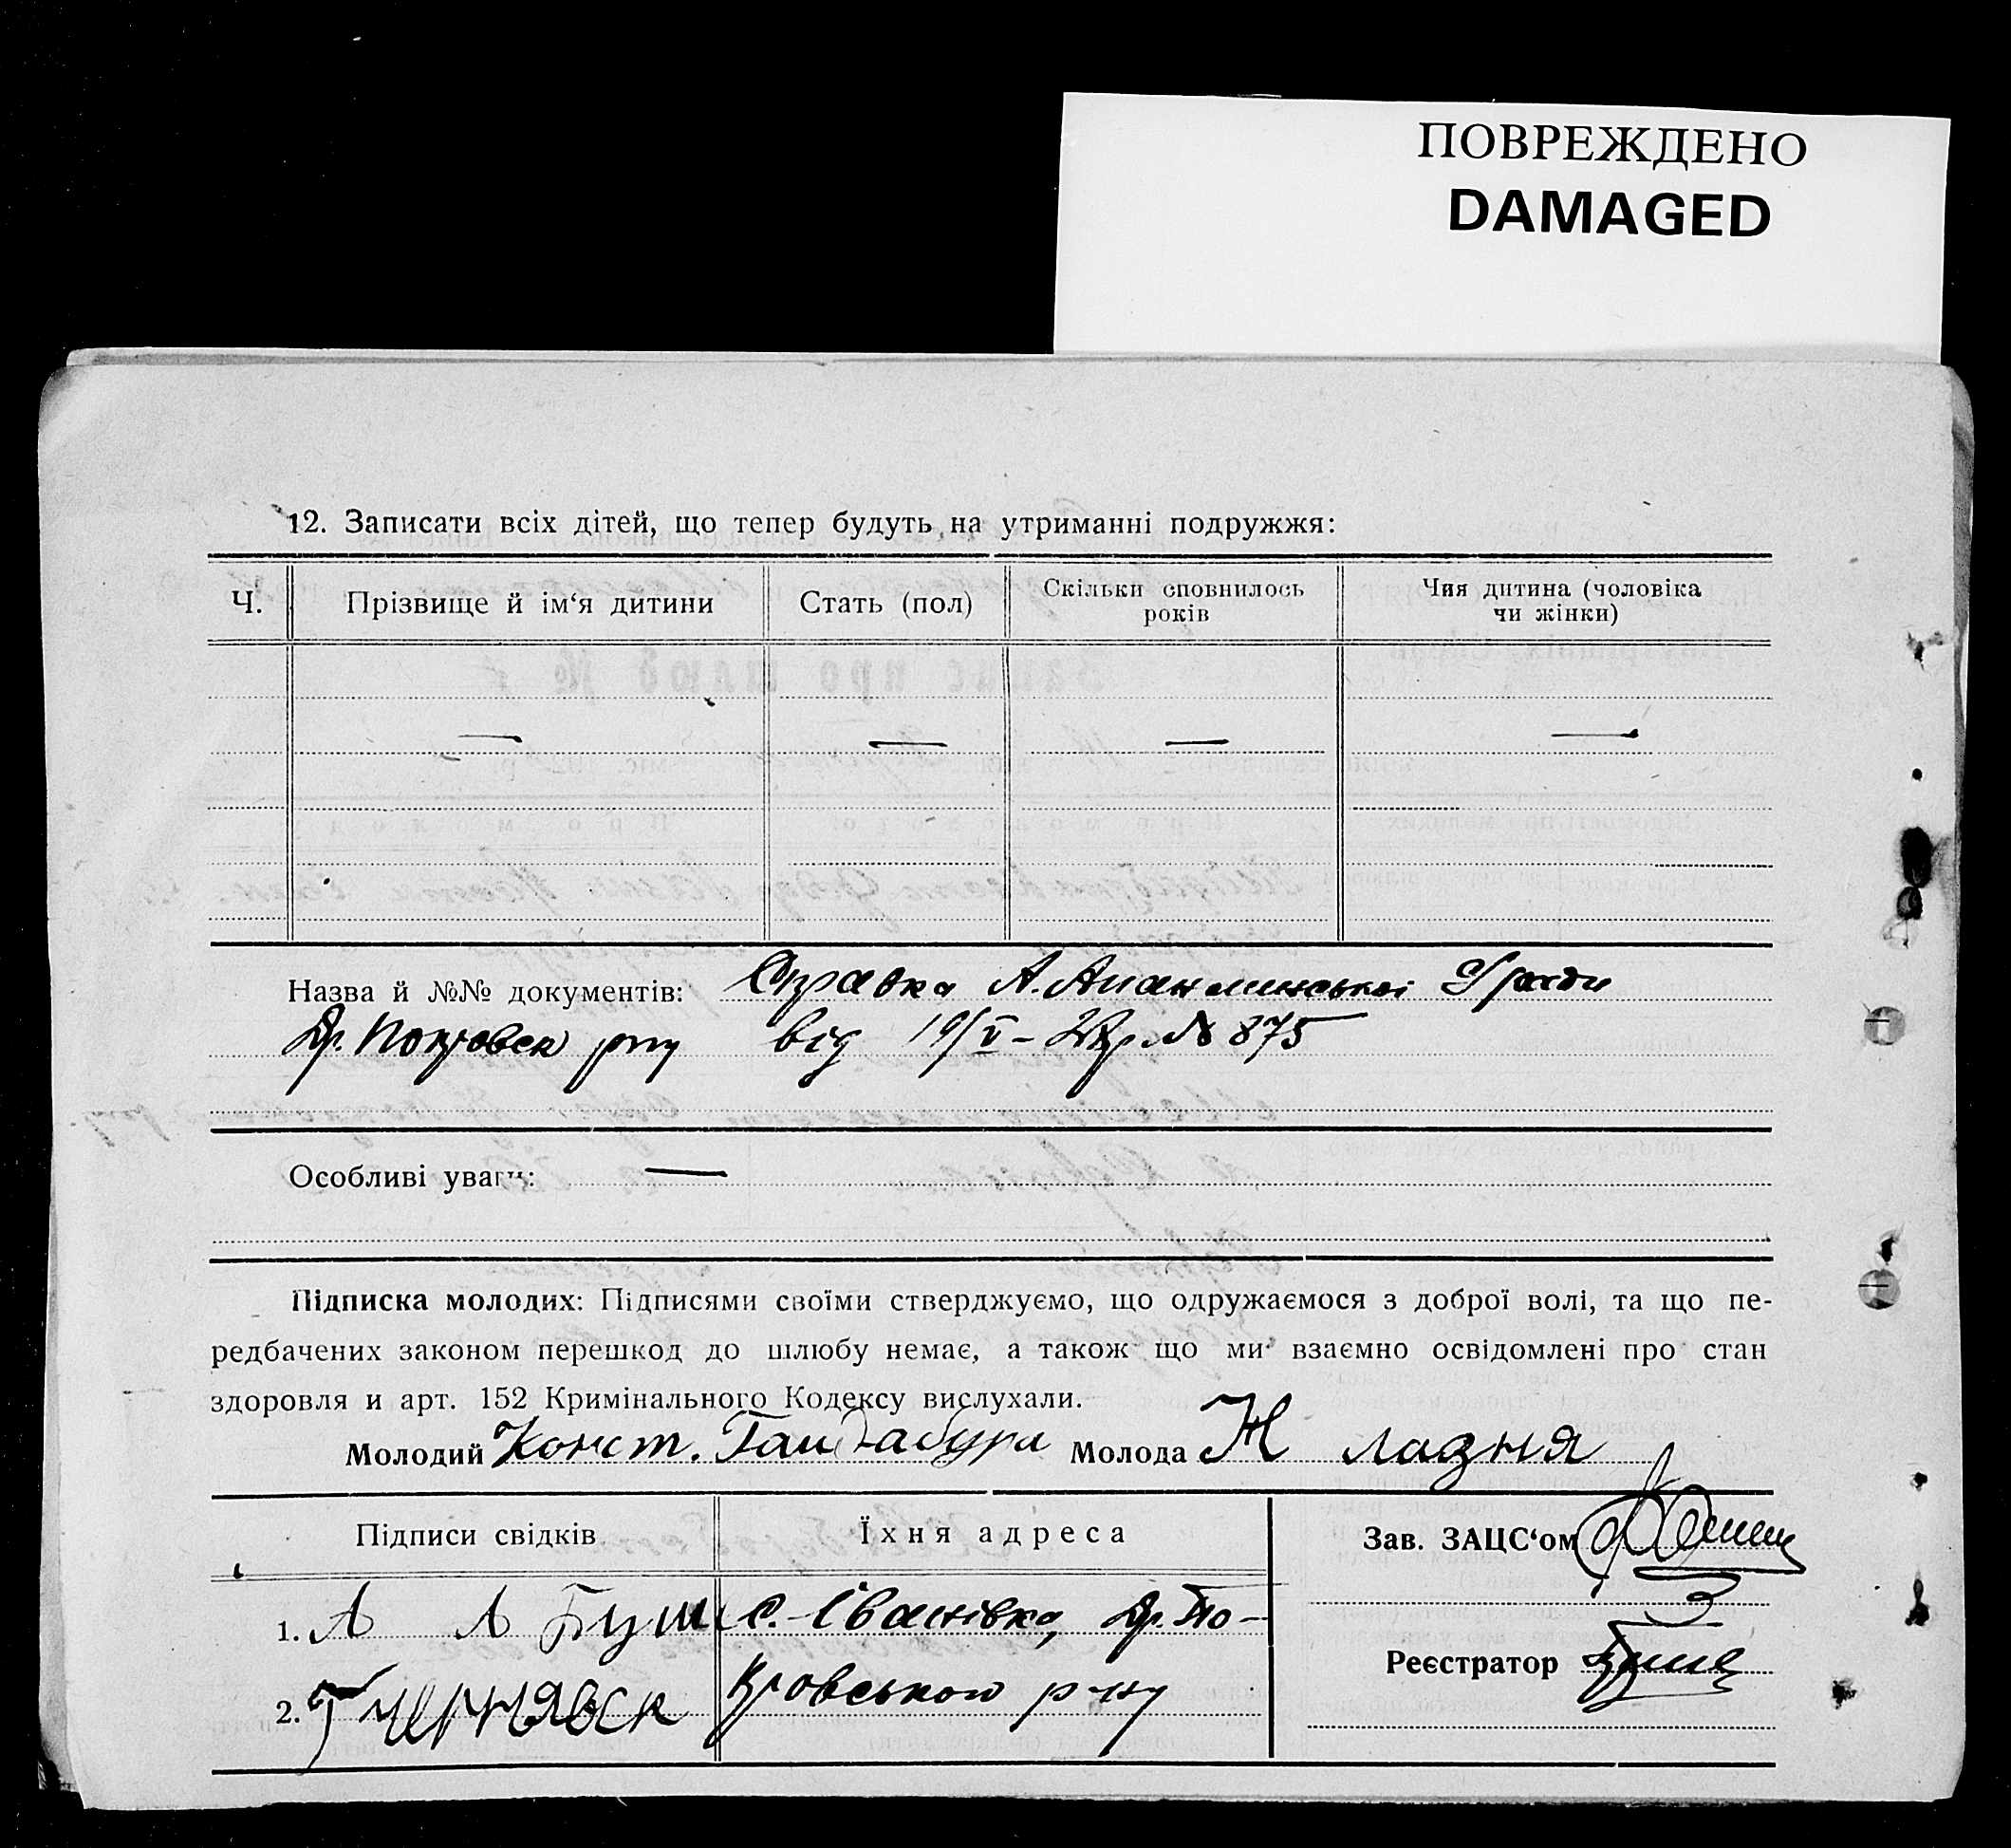 ПОВРЕЖДЕНО
DAMAGED
12. Записати всіх дітей, що тепер будуть на утриманні подружжя:
Ч. Прізвище й ім‘я дитини Стать (пол) Скільки сповнилось років Чия дитина (чоловіка чи жінки)
— — — —
Назва й №№ документів: Справка А.
Др. Покровск р-ну від 19/V – № 875
Особливі уваги: —
Підписка молодих: Підписями своїми стверджуємо, що одружаємося з доброї волі, та що пе-
редбачених законом перешкод до шлюбу немає, а також що ми взаємно освідомлені про стан
здоровля и арт. 152 Кримінального Кодексу вислухали.
Молодий Конст. Гайдабура Молода Н лазня
Підписи свідків Їхня адреса Зав. ЗАЦС‘ом
1. А Л Буш с. Іванівка, Др. По-
Реєстратор
2. кровського р-ну